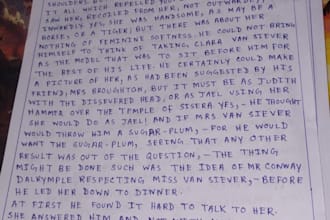 SHOULDERS BUT
IT ALL WHICH REPELLED YOU? NOT OUTWARDLY
SAW HER, RECOILED FROM HER, NOT OUTWARDLY BUT
INWARDLY. YES, SHE WAS HANDSOME, AS MAY BE A
HORSE, OR A TIGER; BUT THERE WAS ABOUT HER
NOTHING OF FEMININE SOFTNESS. HE COULD NOT BRING
HIMSELF TO THINK OF TAKING CLARA VAN SIEVER
AS THE MODEL THAT WAS TO SIT BEFORE HIM FOR
THE REST OF HIS LIFE. HE CERTAINLY COULD MAKE
A PICTURE OF HER, AS HAD BEEN SUGGESTED BY HIS
FRIEND, MRS. BROUGHTON, BUT IT MUST BE AS JUDITH
WITH THE DISSEVERED HEAD, OR AS JAEL USING HER
HAMMER OVER THE TEMPLE OF SISERA. YES, - HE THOUGHT
SHE WOULD DO AS JAEL; AND IF MRS. VAN SIEVER
WOULD THROW HIM A SUGAR-PLUM, - FOR HE WOULD
WANT THE SUGAR-PLUM, SEEING THAT ANY OTHER
RESULT WAS OUT OF THE QUESTION, - THE THING
MIGHT BE DONE. SUCH WAS THE IDEA OF MR CONWAY
DALRYMPLE RESPECTING MISS VAN SIEVER, - BEFORE
HE LED HER DOWN TO DINNER.
AT FIRST HE FOUND IT HARD TO TALK TO HER.
SHE ANSWERED HIM AND